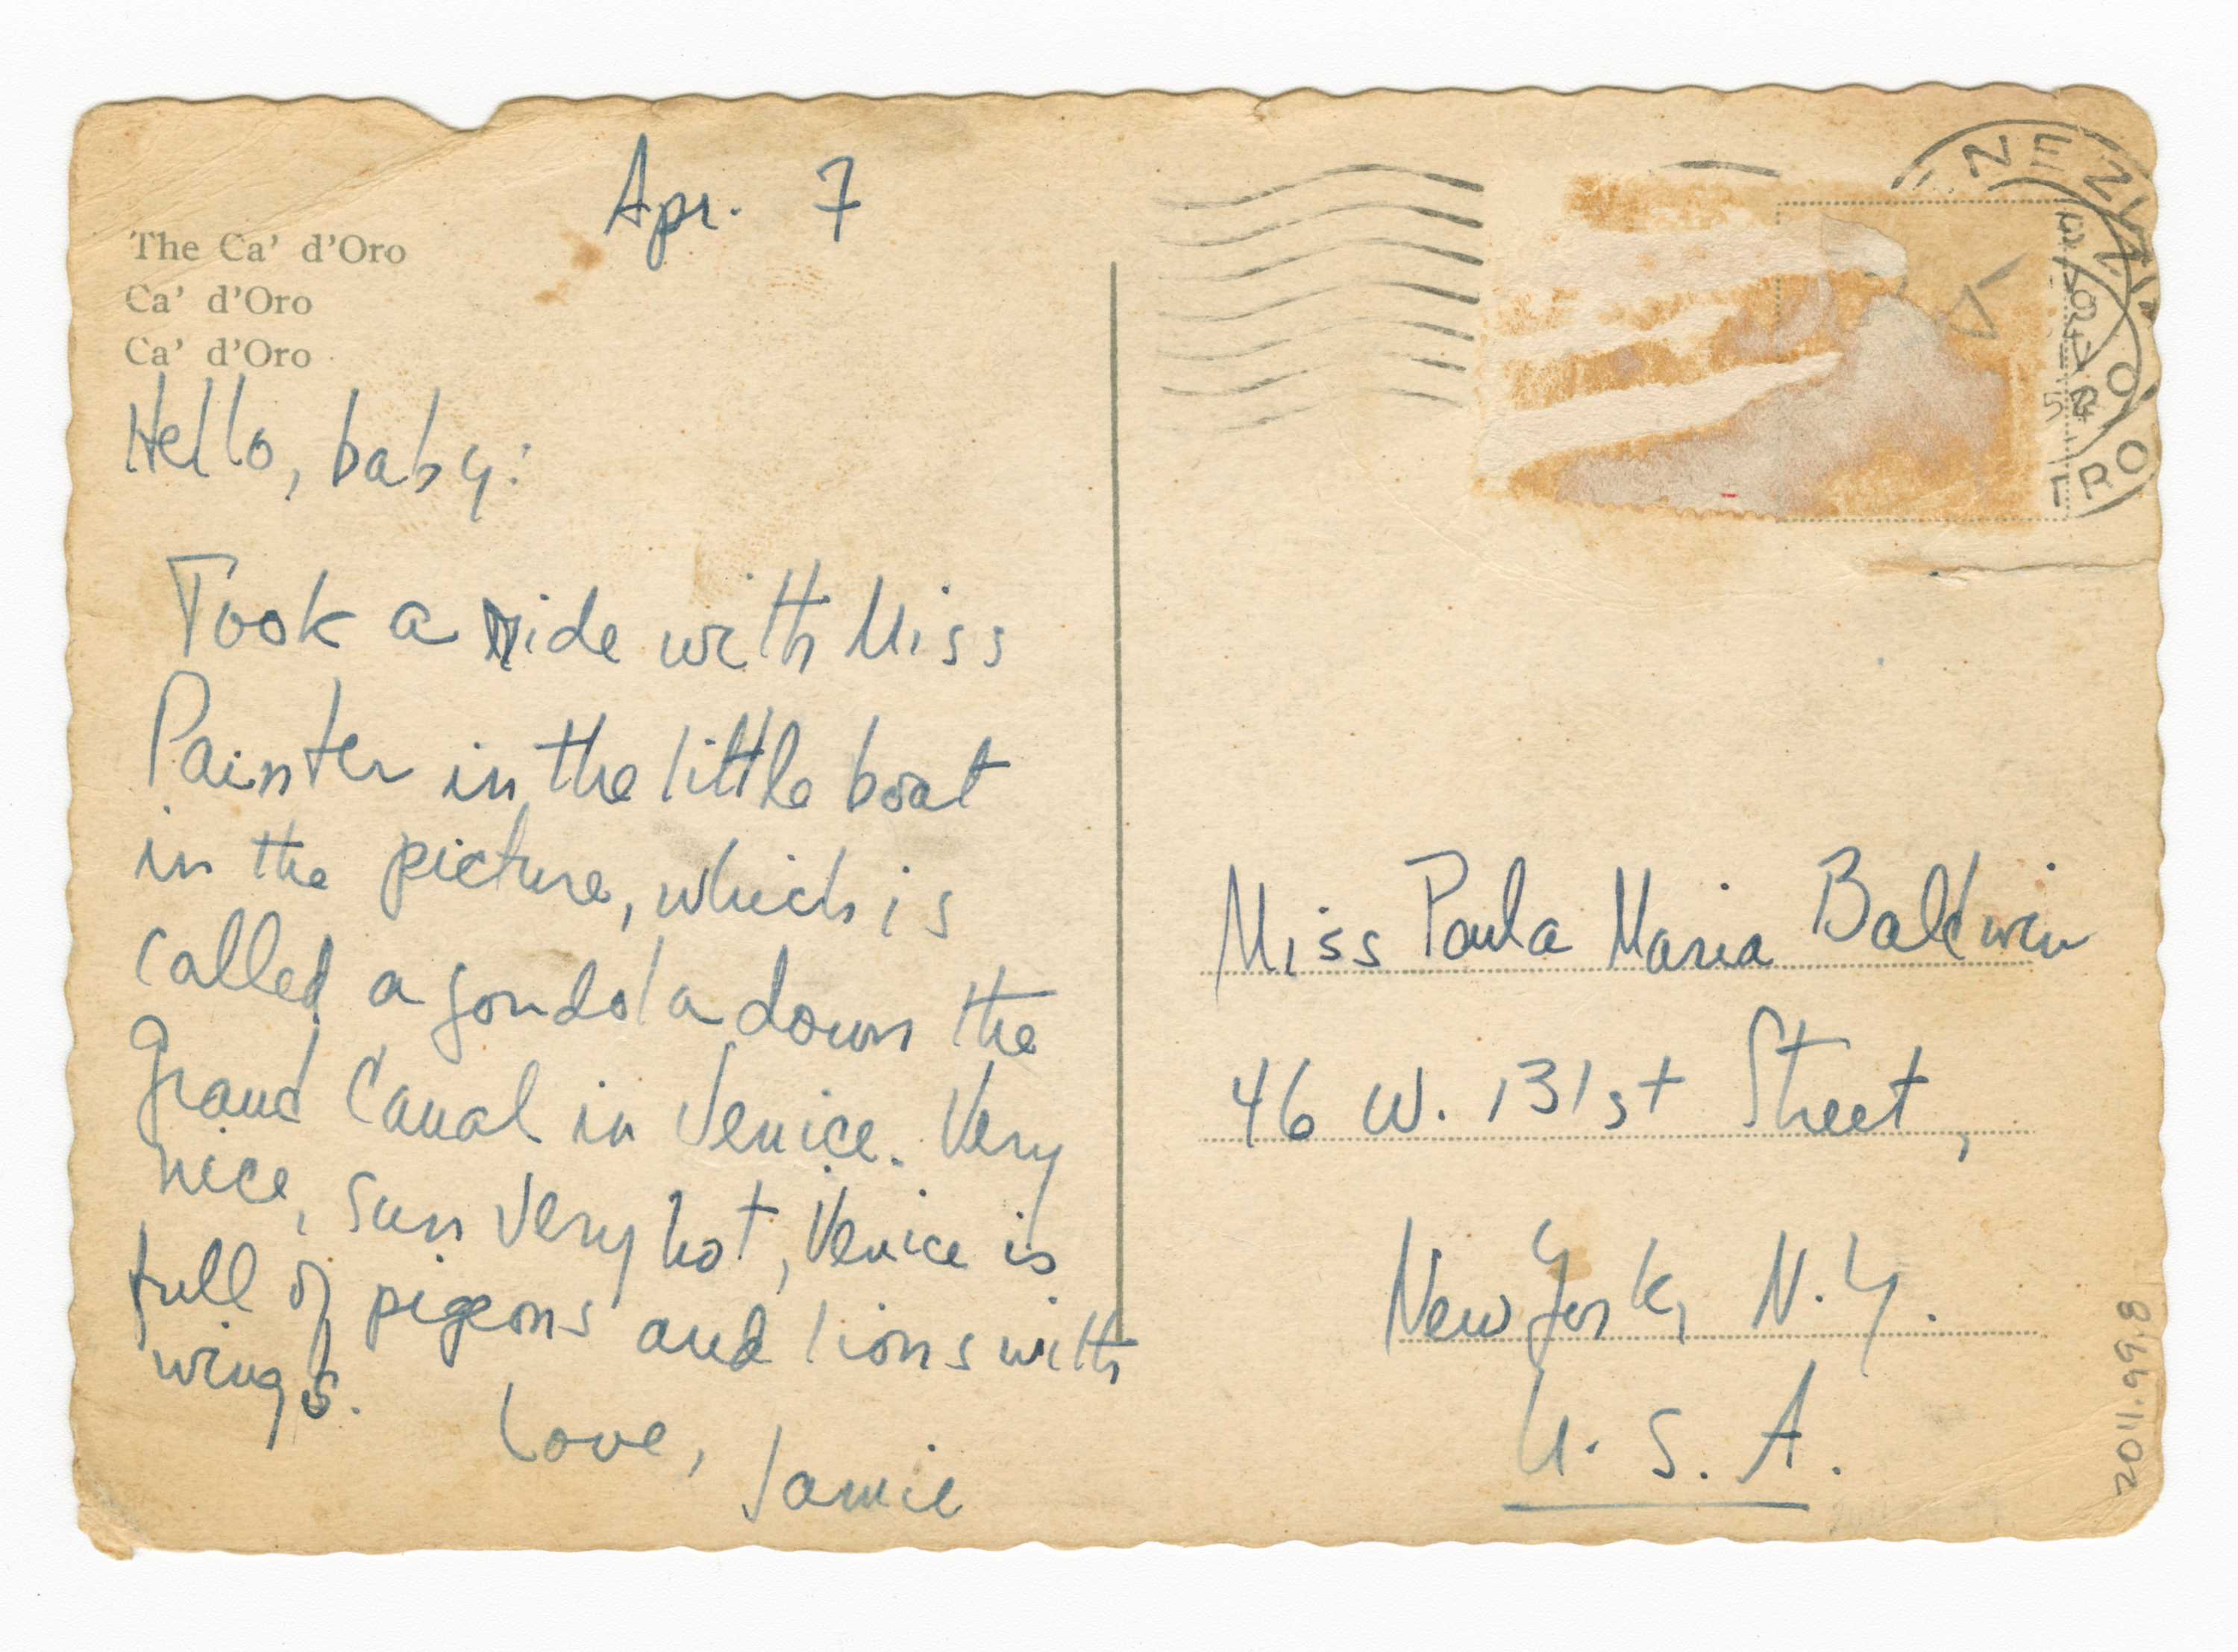 Apr. 7
The Ca' d'Oro
Ca' d'Oro
Ca' d'Oro
Hello, baby:
Took a ride with Miss
Painter in the little boat
in the picture, which is
called a gondola down the
Grand Canal in Venice. Very
nice, sun very hot, Venice is
full of pigeons and lions with
wings.
Love,
Jamie
Miss Paula Maria Baldwin
46 W. 131st Street,
New York, N.Y.
U. S. A.
2011.99.8